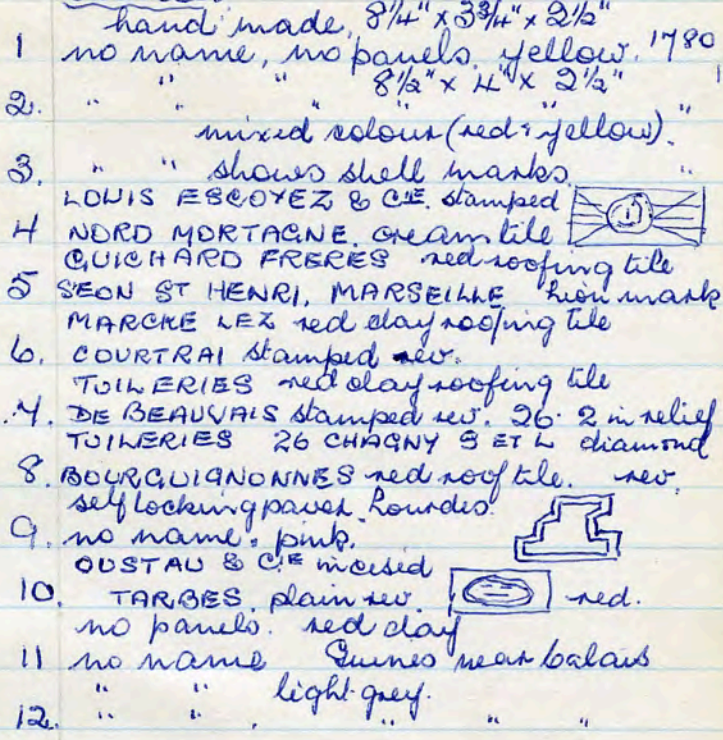 hand made, 8 1/4" x 3 3/4" x 2 1/2"
1 no name, no panels, yellow. 1780
" " 8 1/2" x 4" x 2 1/2"
2. " " " " " "
mixed colour (red & yellow).
3. " " shows shell marks. "
LOUIS ESCOYEZ & CIE. stamped
4 NORD MORTAGNE. cream tile
GUICHARD FRERES red roofing tile
5 SEON ST HENRI, MARSEILLE Lion mark
MARCKE LEZ red clay roofing tile
6. COURTRAI stamped rev.
TUILERIES red clay roofing tile
7. DE BEAUVAIS stamped rev. 26. 2 in relief
TUILERIES 26 CHAGNY S ET L diamond
8. BOURGUIGNONNES red roof tile. rev.
self locking paver. Lourdes.
9. no name. pink.
OUSTAU & CIE incised
10. TARBES. plain rev. red.
no panels. red clay
11 no name Guines near Calais
" " light grey.
12. " " . " " "